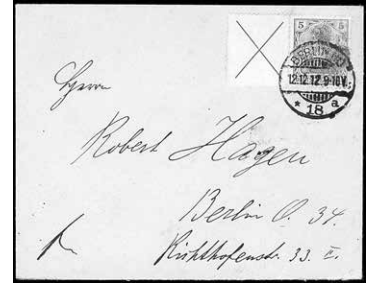 5 5
BERLIN
12.12.12.9-10V.
* 18 a
Herrn
Robert Hagen
Berlin O. 34.
Richthofenstr. 33. II.